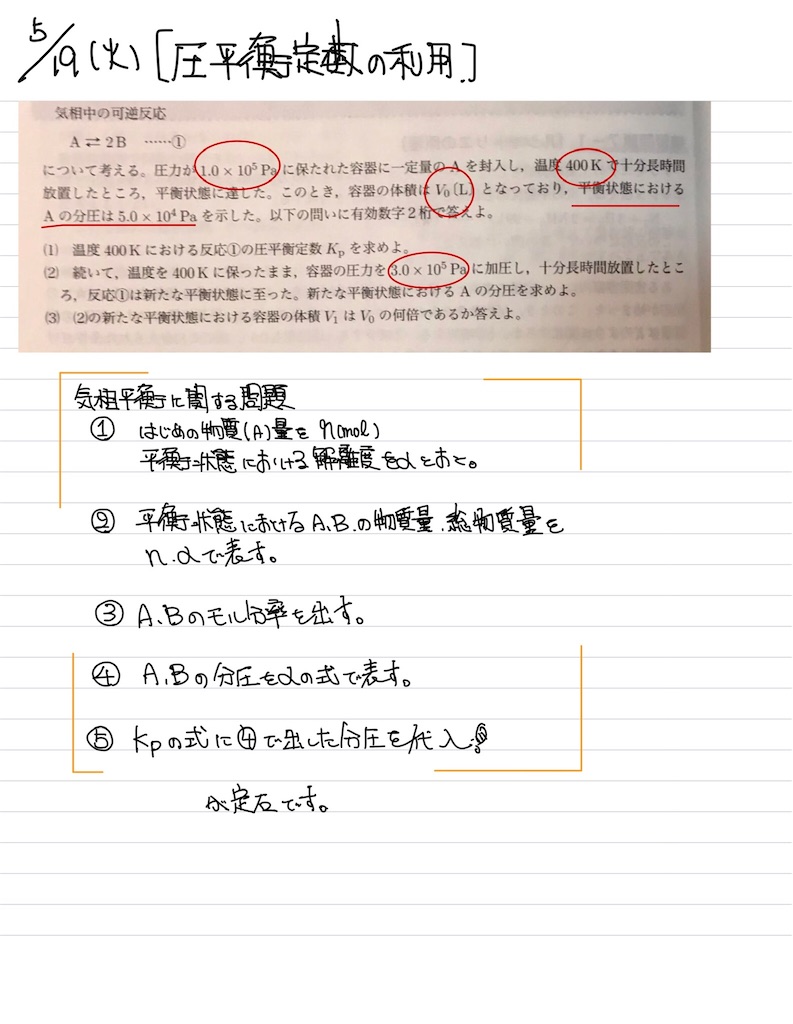 5/19(火)[圧平衡定数の利用]
気相中の可逆反応
A ⇄ 2B ……①
について考える。圧力が 1.0 × 10⁵ Pa に保たれた容器に一定量の A を封入し，温度 400 K で十分長時間
放置したところ，平衡状態に達した。このとき，容器の体積は V₀〔L〕となっており，平衡状態における
A の分圧は 5.0 × 10⁴ Pa を示した。以下の問いに有効数字 2 桁で答えよ。
(1) 温度 400 K における反応①の圧平衡定数 Kₚ を求めよ。
(2) 続いて，温度を 400 K に保ったまま，容器の圧力を 3.0 × 10⁵ Pa に加圧し，十分長時間放置したとこ
ろ，反応①は新たな平衡状態に至った。新たな平衡状態における A の分圧を求めよ。
(3) (2)の新たな平衡状態における容器の体積 V₁ は V₀ の何倍であるか答えよ。
気相平衡に関する問題
① はじめの物質(A)量を n(mol)
平衡状態における解離度をαとおく。
② 平衡状態におけるA、B、の物質量、総物質量を
n、αで表す。
③ A、Bのモル分率を出す。
④ A、Bの分圧をαの式で表す。
⑤ Kpの式に④で出した分圧を代入
が定石です。